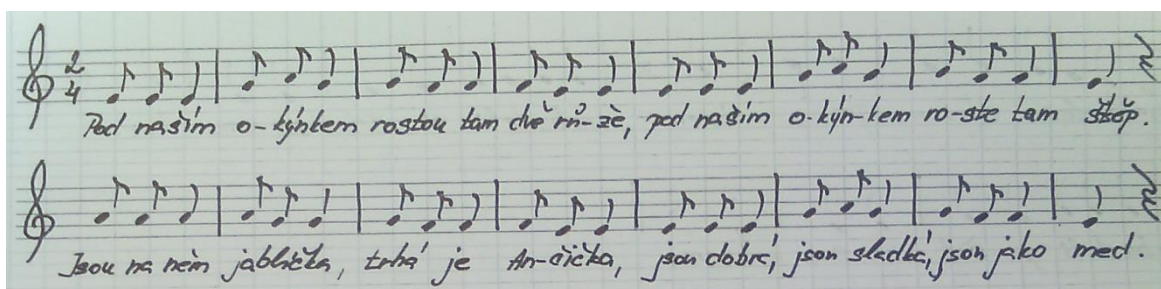 2 4
Pod naším o-kýnkem rostou tam dvě rů-že, pod naším o-kýn-kem ro-ste tam štěp.
Jsou na něm jablíčka, trhá je An-čička, jsou dobrá, jsou sladká, jsou jako med.